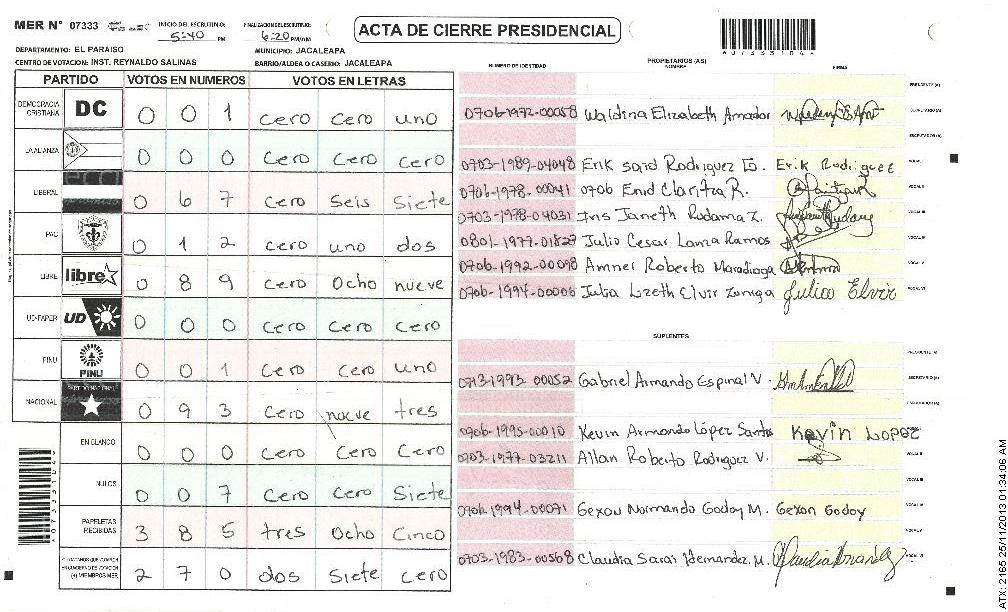 MER N° 07333 INICIO DEL ESCRUTINIO: 5:40 PM FINALIZACION DEL ESCRUTINIO: 6:20 PM/AM
ACTA DE CIERRE PRESIDENCIAL
A073331046
DEPARTAMENTO: EL PARAISO MUNICIPIO: JACALEAPA
CENTRO DE VOTACION: INST. REYNALDO SALINAS BARRIO/ALDEA O CASERIO: JACALEAPA
PARTIDO VOTOS EN NUMEROS VOTOS EN LETRAS
DEMOCRACIA CRISTIANA DC 0 0 1 cero cero uno
LA ALIANZA 0 0 0 Cero Cero cero
LIBERAL 0 6 7 Cero Seis Siete
PAC 0 1 2 cero uno dos
LIBRE libre 0 8 9 Cero Ocho nueve
UD-FAPER UD 0 0 0 Cero Cero Cero
PINU PINU 0 0 1 Cero Cero uno
NACIONAL PARTIDO NACIONAL 0 9 3 Cero nueve tres
EN BLANCO 0 0 0 Cero Cero Cero
NULOS 0 0 7 Cero Cero Siete
PAPELETAS RECIBIDAS 3 8 5 tres Ocho Cinco
2 7 0 dos Siete cero
A073331046
NUMERO DE IDENTIDAD PROPIETARIOS (AS) NOMBRE FIRMA
PRESIDENTE (A)
0706-1972-00058 Waldina Elizabeth Amador SECRETARIO (A)
ESCRUTADOR (A)
0703-1989-04048 Erik Said Rodriguez E. Erik Rodriguez VOCAL I
0706-1978-00041 0706 Enid Claritza R. VOCAL II
0703-1978-04031 Iris Janeth Rudama Z. VOCAL III
0801-1977-01829 Julio Cesar Lanza Ramos VOCAL IV
0706-1992-00098 Amner Roberto Maradiaga VOCAL V
0706-1994-00006 Julia Lizeth Elvir Zuniga Julia Elvir VOCAL VI
SUPLENTES
PRESIDENTE (A)
0713-1993-00052 Gabriel Armando Espinal V. SECRETARIO (A)
ESCRUTADOR (A)
0906-1995-00010 Kevin Armando López Santos Kevin Lopez VOCAL I
0703-1977-03211 Allan Roberto Rodriguez V. VOCAL II
VOCAL III
0706-1994-00071 Gexon Normando Godoy M. Gexon Godoy VOCAL IV
VOCAL V
0703-1983-00568 Claudia Sarai Hernandez M. VOCAL VI
ATX: 2165 25/11/2013 01:34:06 AM